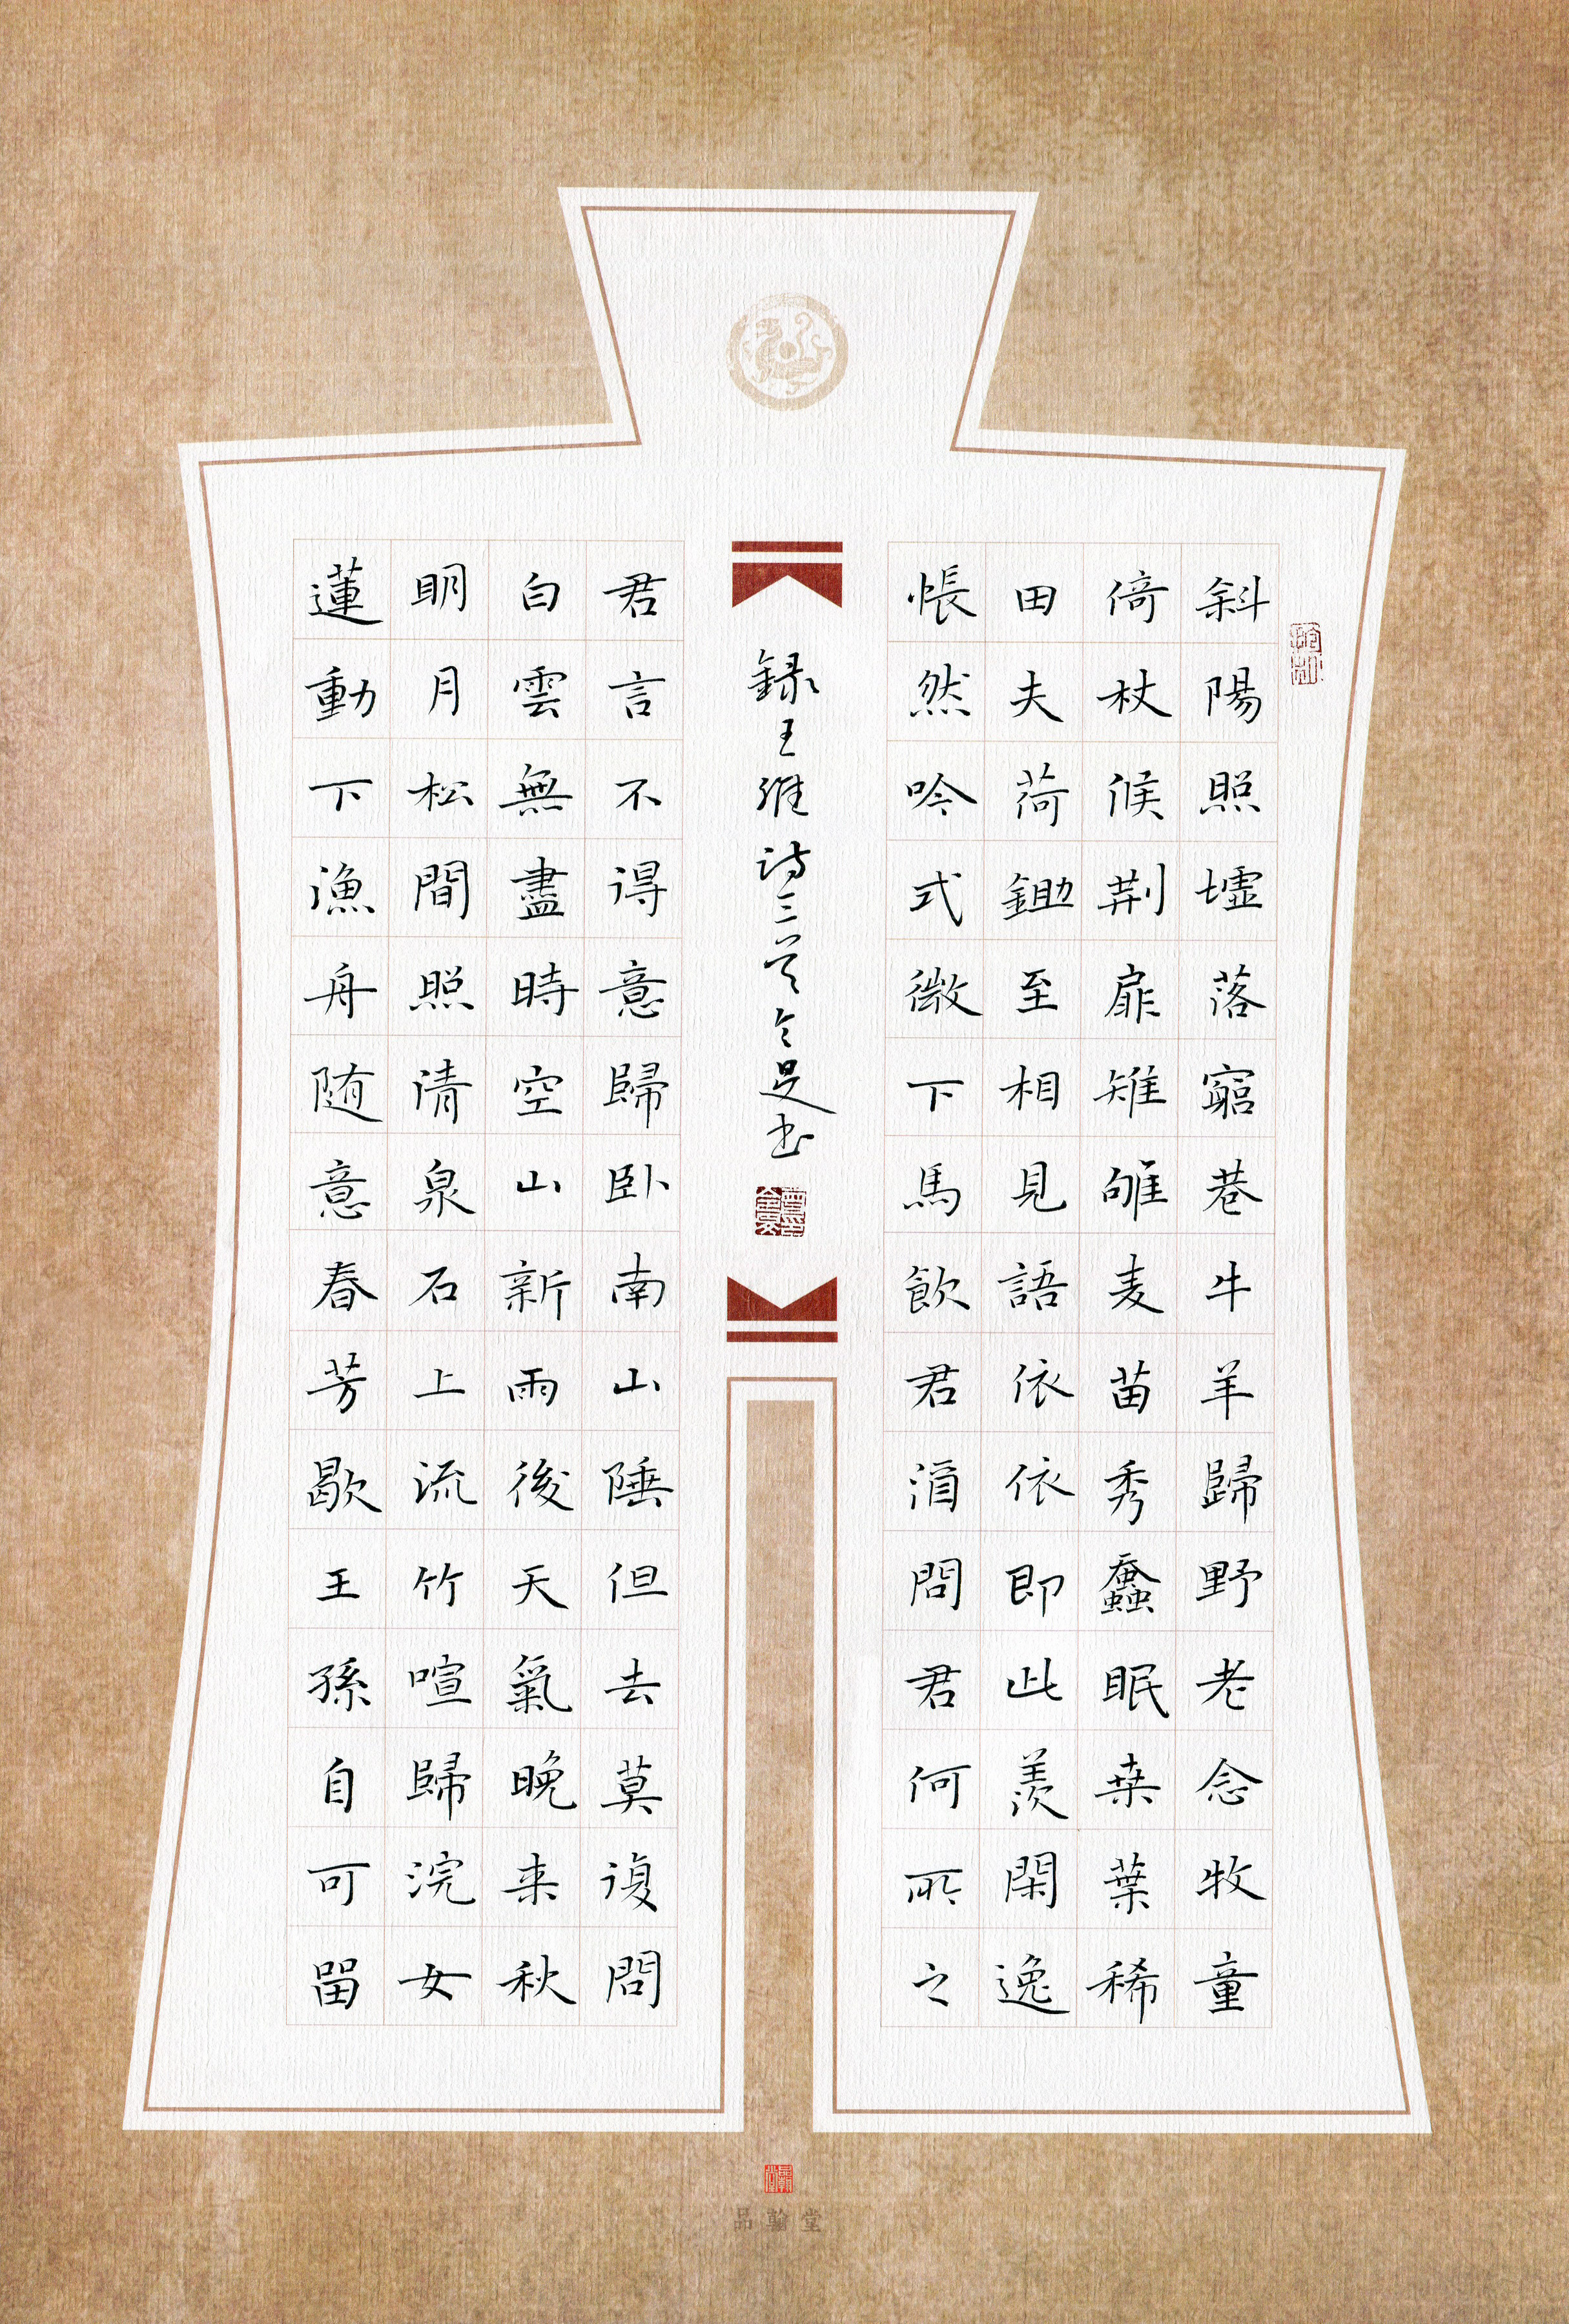 斜陽照墟落窮巷牛羊歸野老念牧童
倚杖候荆扉雉雊麦苗秀蠶眠桒葉稀
田夫荷鋤至相見語依依即此羨閑逸
悵然吟式微下馬飲君酒問君何所之
録王維詩三首旻书
君言不得意歸卧南山陲但去莫復問
白雲無盡時空山新雨後天氣晚来秋
明月松間照清泉石上流竹喧歸浣女
蓮動下漁舟随意春芳歇王孫自可留
品翰堂